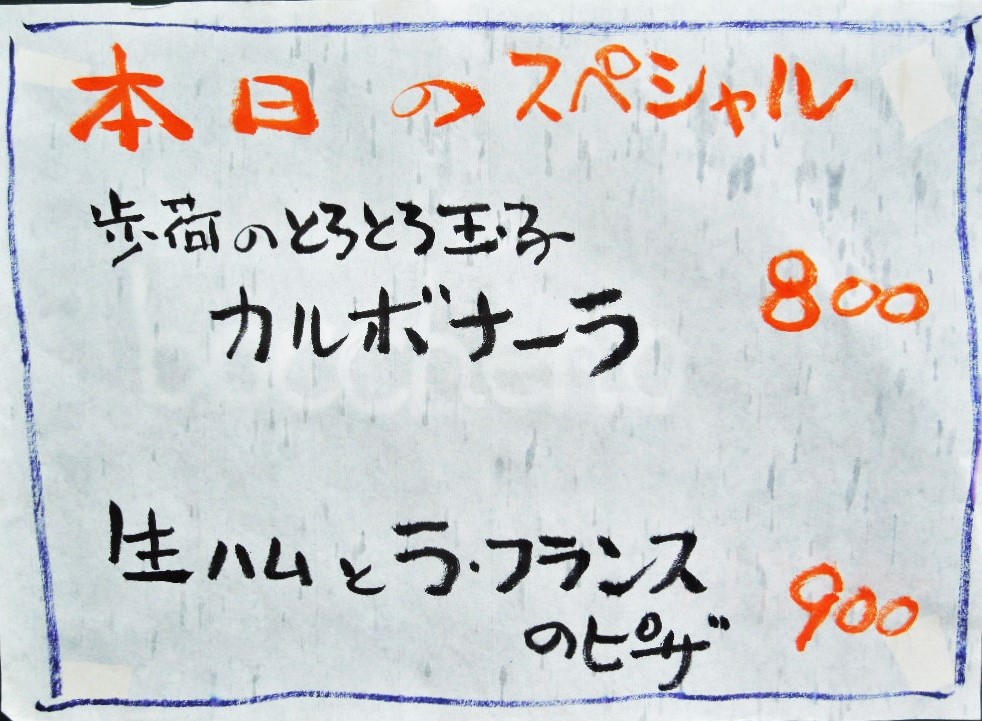 本日のスペシャル
歩荷のとろとろ玉子
カルボナーラ
800
生ハムとラ・フランス
のピザ
900